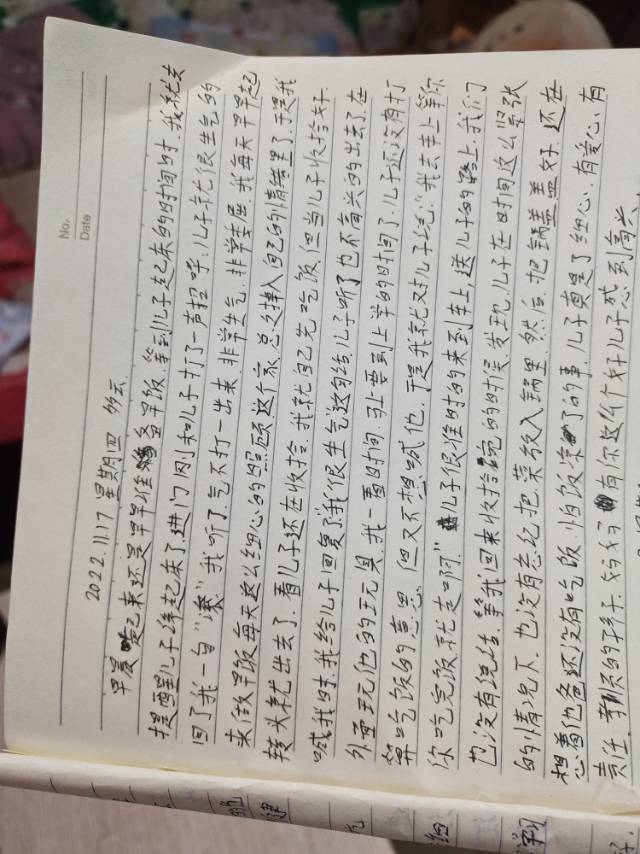 No.
Date
2022.11.17 星期四 多云
早晨起来还是早早准备早饭,等到儿子起来的时间时,我就去
提醒儿子该起来了,进门刚和儿子打了一声招呼,儿子就很生气的
回了我一句"滚",我听了气不打一出来,非常生气,非常委屈,我每天早起
来做早饭每天这么细心的照顾这个家,总之掉入自己的情绪里了,于是我
转头就出去了,看儿子还在收拾,我就自己先吃饭,但当儿子收拾好
喊我时,我给儿子回复了"我很生气"这句话,儿子听了也不高兴的出去了,在
外面玩他的玩具,我一看时间,马上要到上学的时间了,儿子还没有打
算吃饭的意思,但又不想喊他,于是我就对儿子说:"我去车上等你
你吃完饭就走啊",儿子很准时的来到车上,送儿子的路上,我们
也没有说话,等我回来收拾碗的时候,发现,儿子在时间这么紧张
的情况下,也没有忘记把菜放入锅里,然后把锅盖盖好,还在
想着他爸还没有吃饭,怕饭凉了的事,儿子真是了细心、有爱心、有
责任、孝顺的孩子,妈妈有你这么个好儿子感到高兴